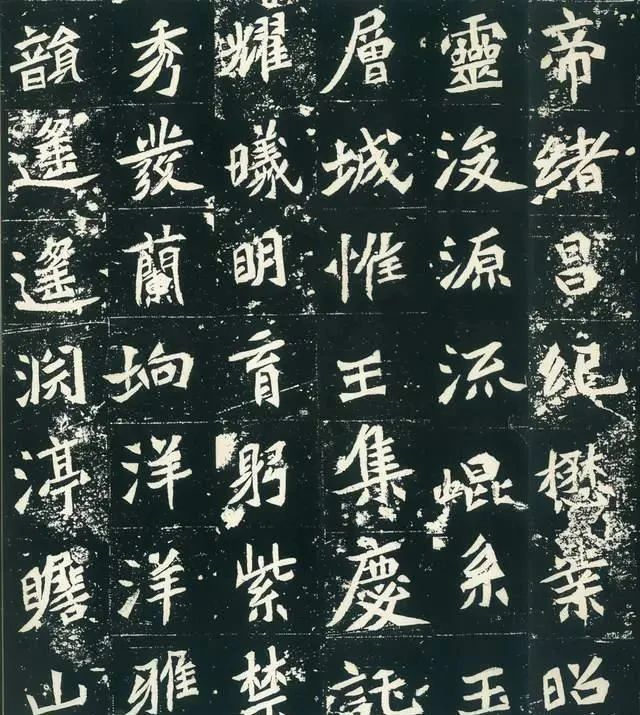 帝緒昌紀懋業昭
靈浚源流崐系玉
層城惟王集慶託
耀曦明育躬紫禁
秀發蘭坰洋洋雅
韻遙遙淵渟瞻山